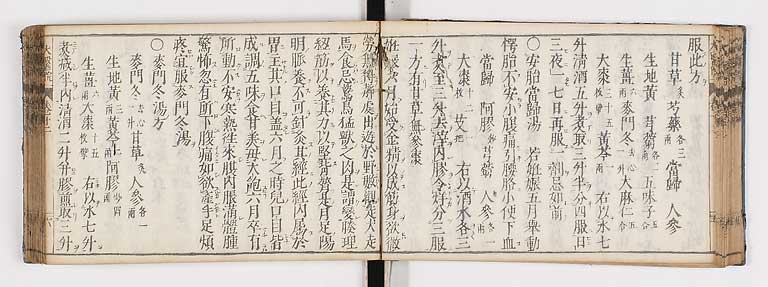 服此方
甘草 芎藭各三兩 當歸 人參
生地黃 芍藥各二兩 五味子五合
生薑六兩 麥門冬去心一升 大麻仁五合
大棗三十五枚擘 黃芩一兩 右以水七
升清酒五升煮取三升半分四服日
三夜一七日再服 一劑忌如前
〇安胎當歸湯 若妊娠五月舉動
愕胎不安小腹痛引腰胳小便下血
當歸 阿膠炒 芎藭 人參各一兩
大棗十二枚 艾一把 右以酒水各三
升煮至三升去滓内膠令烊分三服
一方有甘草無參棗
妊娠六月始受金精以成筋身欲微
勞無得靜處出遊於野數觀走犬走
馬食宜鷙鳥猛獸之肉是謂變腠理
紉筋以養其力以堅背膂是月足陽
明脈養不可針灸其經此經内屬於
胃主其口目蓋六月之時兒口目皆
成調五味食甘美毋大飽六月卒有
所動不安寒熱往來腹内脹滿體腫
驚怖忽有所下腹痛如欲產手足煩
疼宜服麥門冬湯
〇麥門冬湯方
麥門冬去心一升 甘草 人參各一兩
生地黃三兩 黃芩二兩 阿膠炒四兩
生薑六兩 大棗十五枚擘 右以水七升
煮减半内清酒二升并膠煎取三升